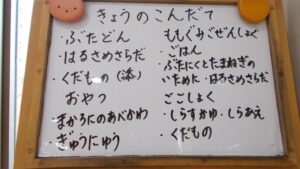 きょうのこんだて
・ぶたどん
・はるさめさらだ
・くだもの(添)
おやつ
・まかろにのあべかわ
・ぎゅうにゅう
ももぐみごぜんしょく
・ごはん
・ぶたにくとたまねぎの
いためた・はるさめさらだ
ごごしょく
・しらすかゆ・しらあえ
・くだもの